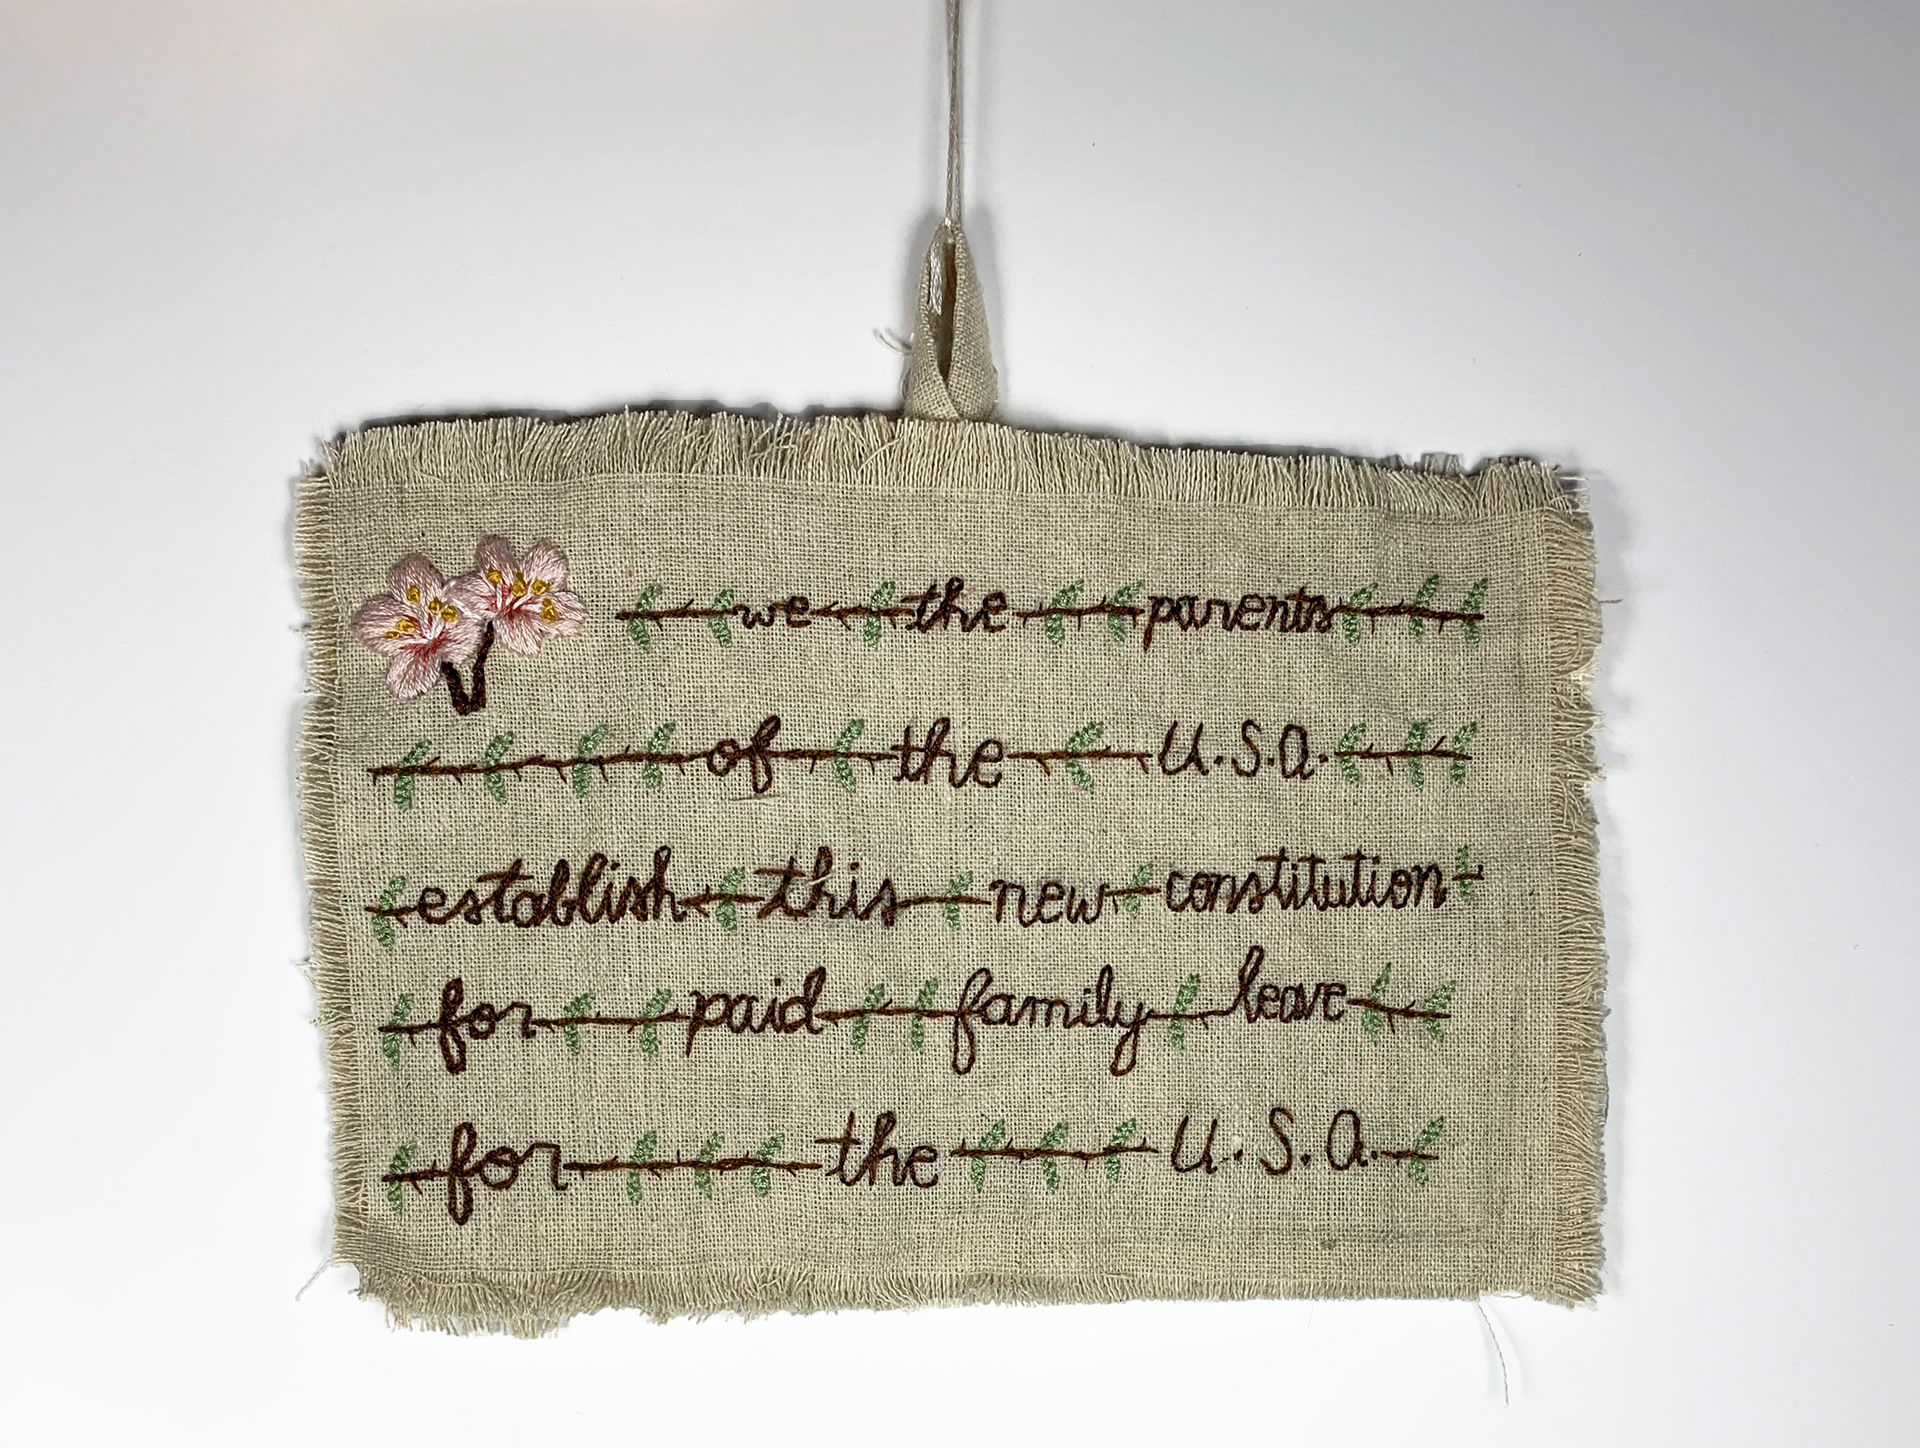 we the parents
of the U.S.A.
establish this new constitution
for paid family leave
for the U.S.A.